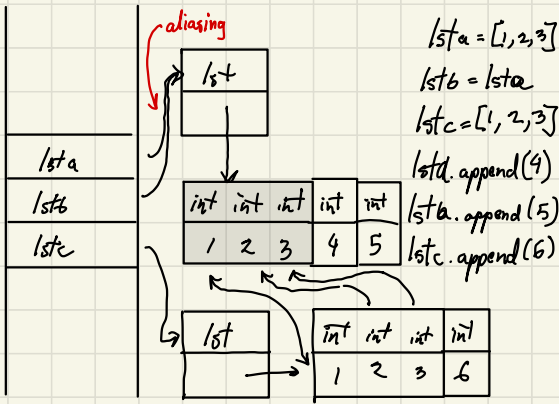 aliasing
lst
lsta
lstb
lstc
int int int int int
1 2 3 4 5
lst
int int int int
1 2 3 6
lsta = [1,2,3]
lstb = lsta
lstc = [1, 2, 3]
lsta.append(4)
lstb.append(5)
lstc.append(6)